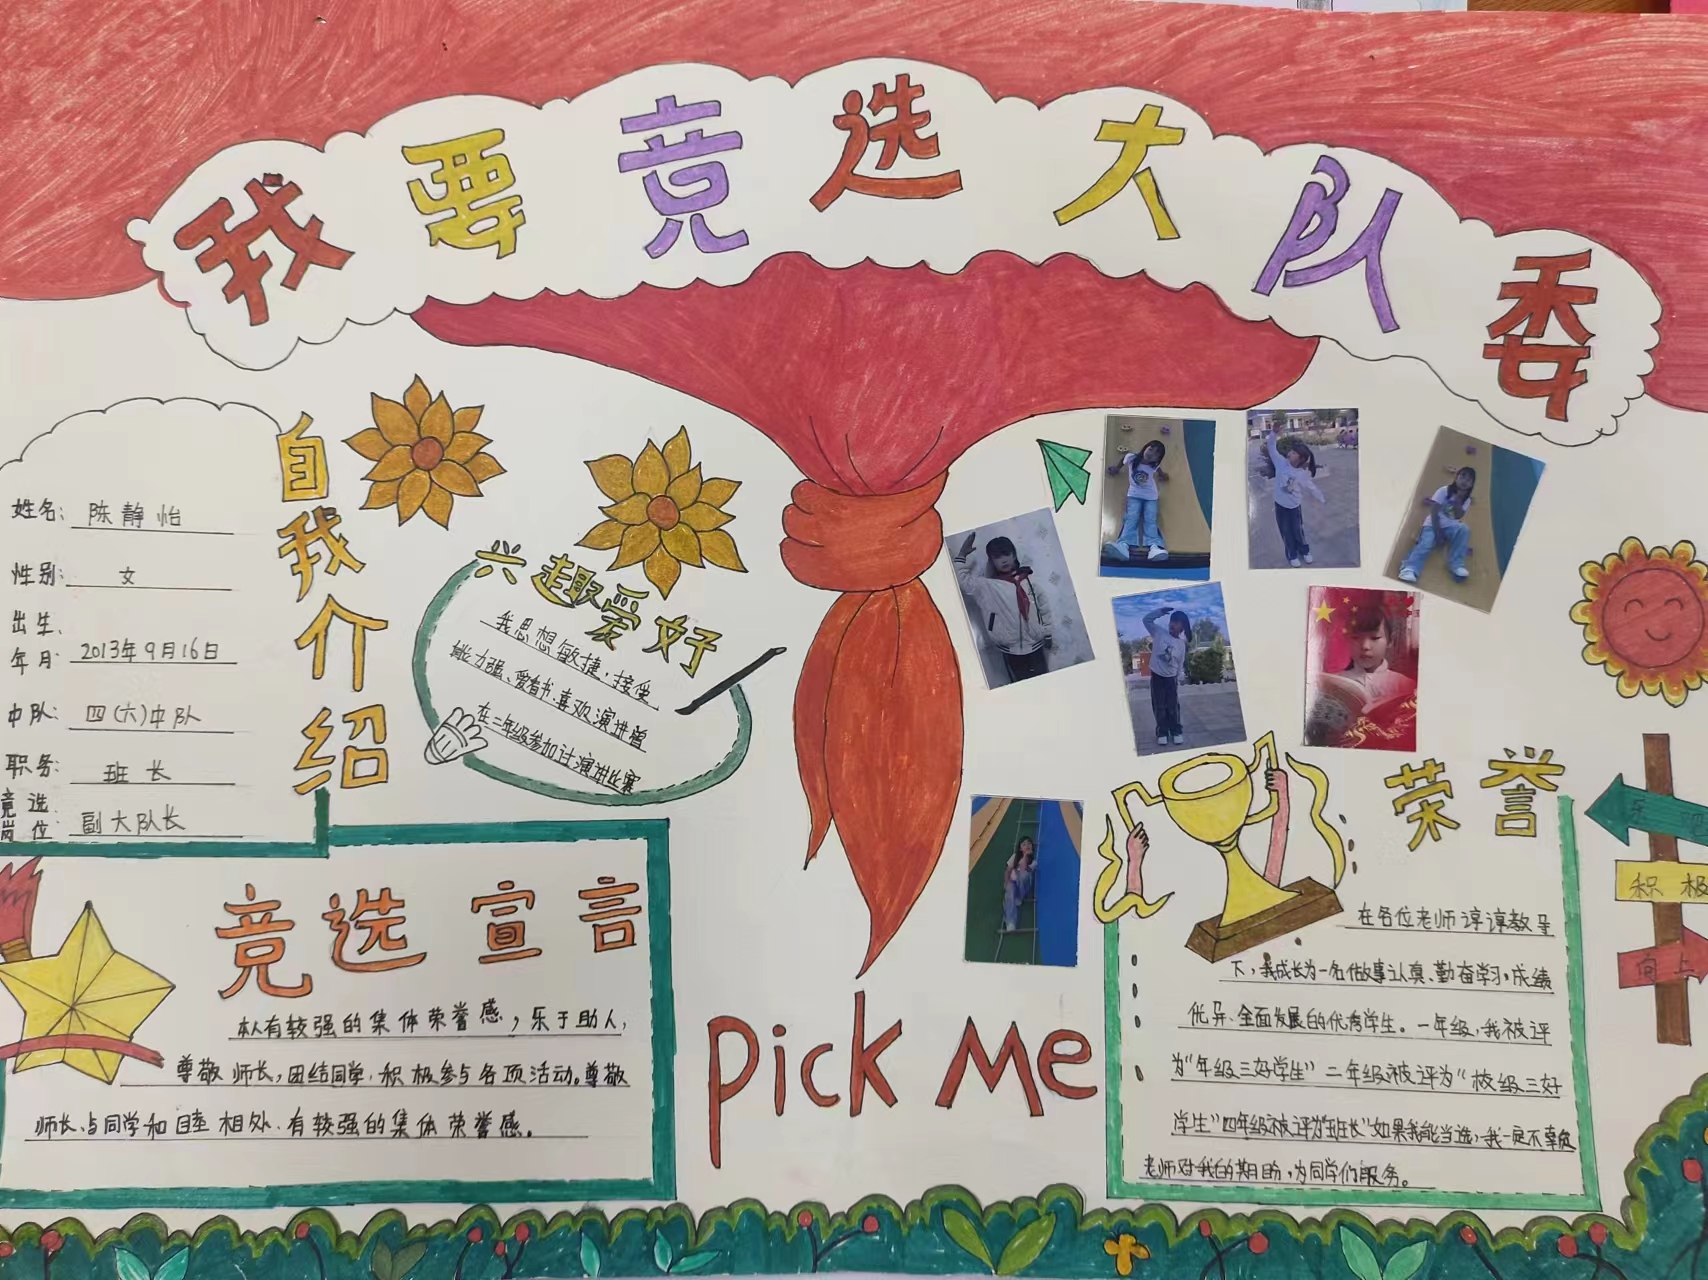 我要竞选大队委
自我介绍
姓名: 陈静怡
性别: 女
出生
年月: 2013年9月16日
中队: 四(六)中队
职务: 班长
竞选
岗位: 副大队长
兴趣爱好
我思想敏捷,接受
能力强、爱看书.喜欢演讲曾
在二年级参加过演讲比赛
竞选宣言
本人有较强的集体荣誉感,乐于助人,
尊敬师长,团结同学.积极参与各项活动。尊敬
师长、与同学和睦相处.有较强的集体荣誉感。
pick Me
荣誉
在各位老师谆谆教导
下,我成长为一名做事认真、勤奋学习,成绩
优异、全面发展的优秀学生。一年级,我被评
为“年级三好学生”二年级被评为“校级三好
学生”四年级被评为“班长”如果我能当选,我一定不辜负
老师对我的期盼,为同学们服务。
乐观
积极
向上